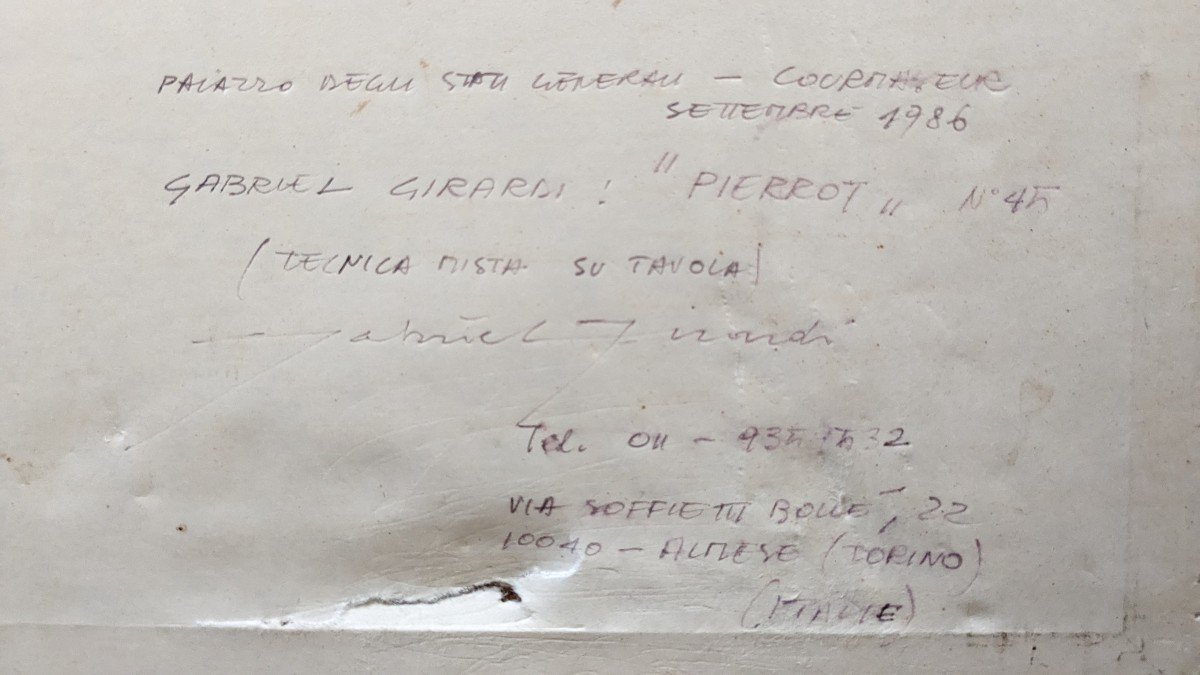 PALAZZO DEGLI STATI GENERALI — COURMAYEUR
SETTEMBRE 1986
GABRIEL GIRARDI : "PIERROT" N° 45
(TECNICA MISTA SU TAVOLA)
Gabriel Girardi
Tel. 011 - 9355532
VIA SOFFIETTI BOLLE, 22
10040 — ALMESE (TORINO)
(ITALIE)